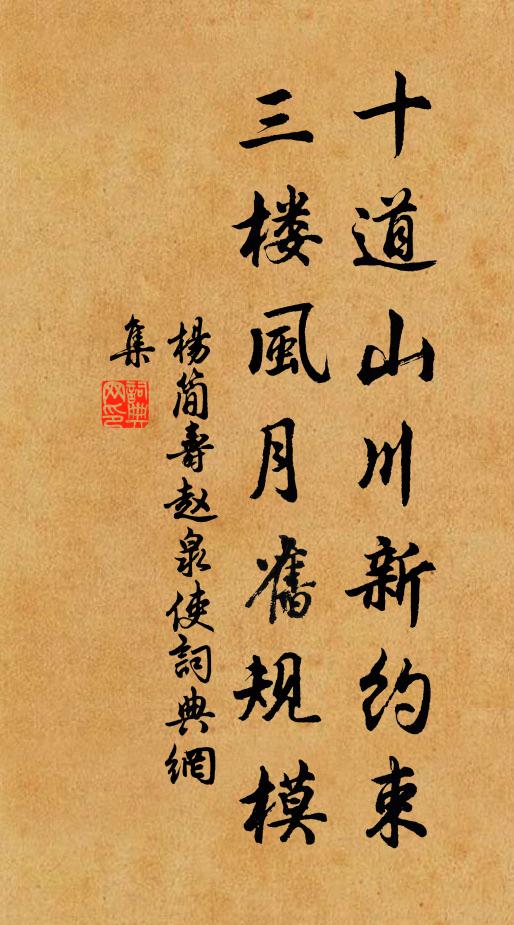 十道山川新约束
三楼風月舊规模
楊简壽赵泉使詞典網
集
詞典
网印